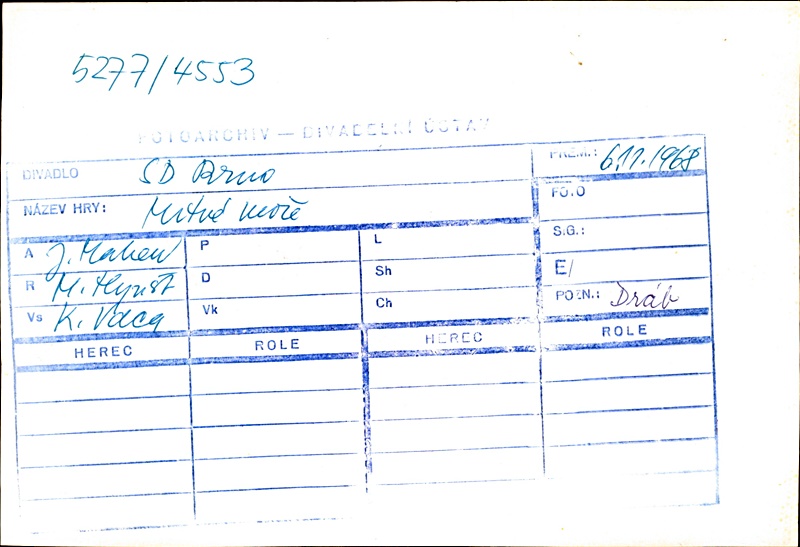 5277/4553
FOTOARCHIV — DIVADELNÍ ÚSTAV
DIVADLO SD Brno PREM.: 6.11.1968
NÁZEV HRY: Mrtvé moře FOTO
A J. Mahen P L SIG.:
R M. Hynšt D Sh E/
Vs K. Vaca Vk Ch POZN.: Dráb
HEREC ROLE HEREC ROLE